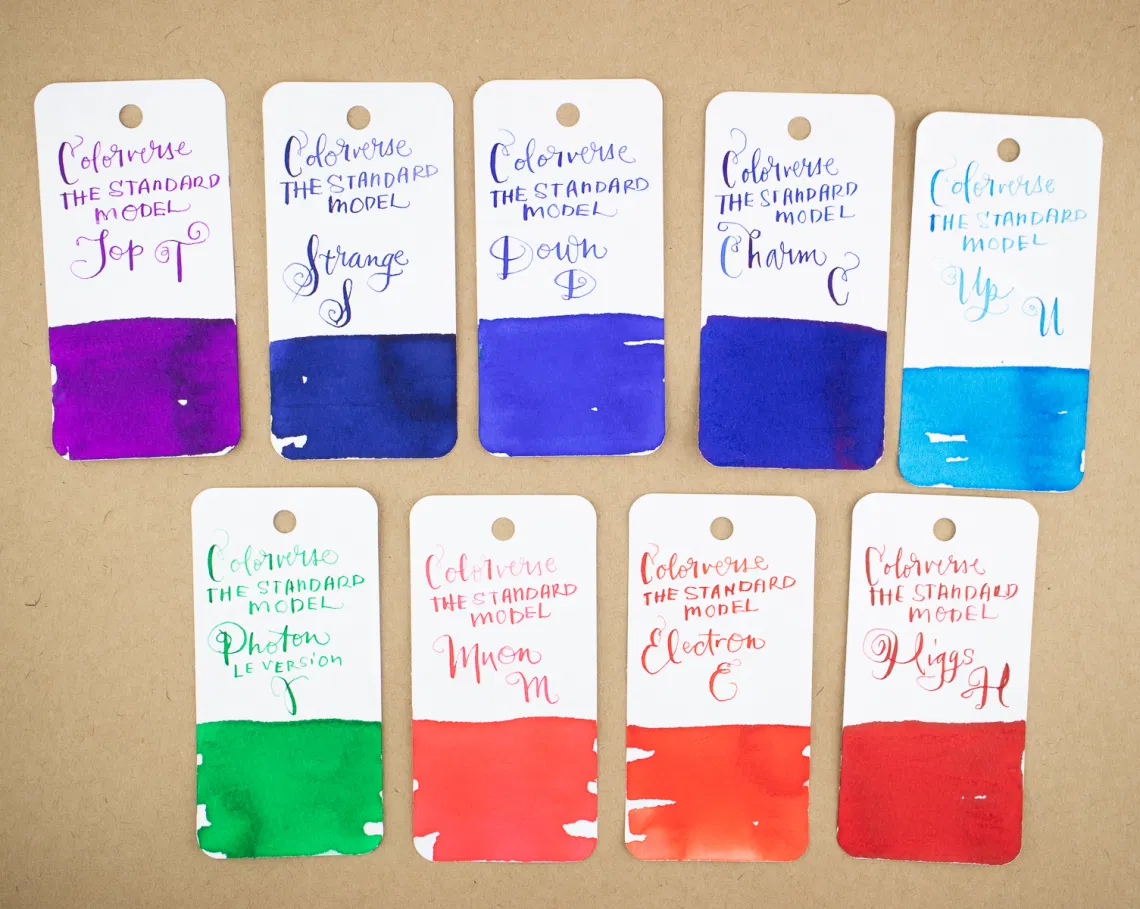 Colorverse
THE STANDARD
MODEL
Top T
Colorverse
THE STANDARD
MODEL
Strange
S
Colorverse
THE STANDARD
MODEL
Down
D
Colorverse
THE STANDARD
MODEL
Charm
C
Colorverse
THE STANDARD
MODEL
Up
U
Colorverse
THE STANDARD
MODEL
Photon
LE VERSION
γ
Colorverse
THE STANDARD
MODEL
Muon
M
Colorverse
THE STANDARD
MODEL
Electron
E
Colorverse
THE STANDARD
MODEL
Higgs
H